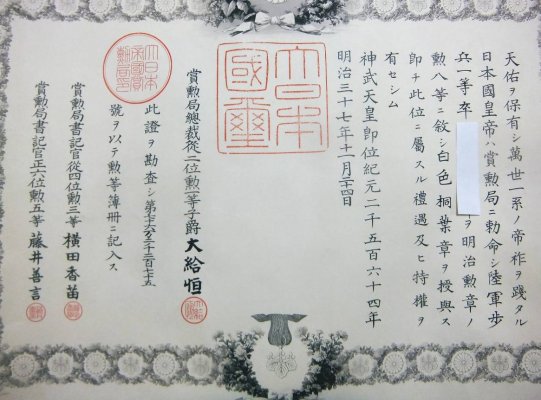 天佑ヲ保有シ萬世一系ノ帝祚ヲ踐タル
日本國皇帝ハ賞勲局ニ勅命シ陸軍歩
兵一等卒 ヲ明治勲章ノ
勲八等ニ敍シ白色桐葉章ヲ授與ス
即チ此位ニ屬スル禮遇及ヒ特權ヲ
有セシム
神武天皇即位紀元二千五百六十四年
明治三十七年十一月二十四日
大日本國璽
賞勲局總裁從二位勲一等子爵大給恒
此證ヲ勘査シ第七十六万三千二百七十五
號ヲ以テ勲等簿册ニ記入ス
大日本帝國賞勲局印
賞勲局書記官從四位勲三等横田香苗
賞勲局書記官正六位勲五等藤井善言